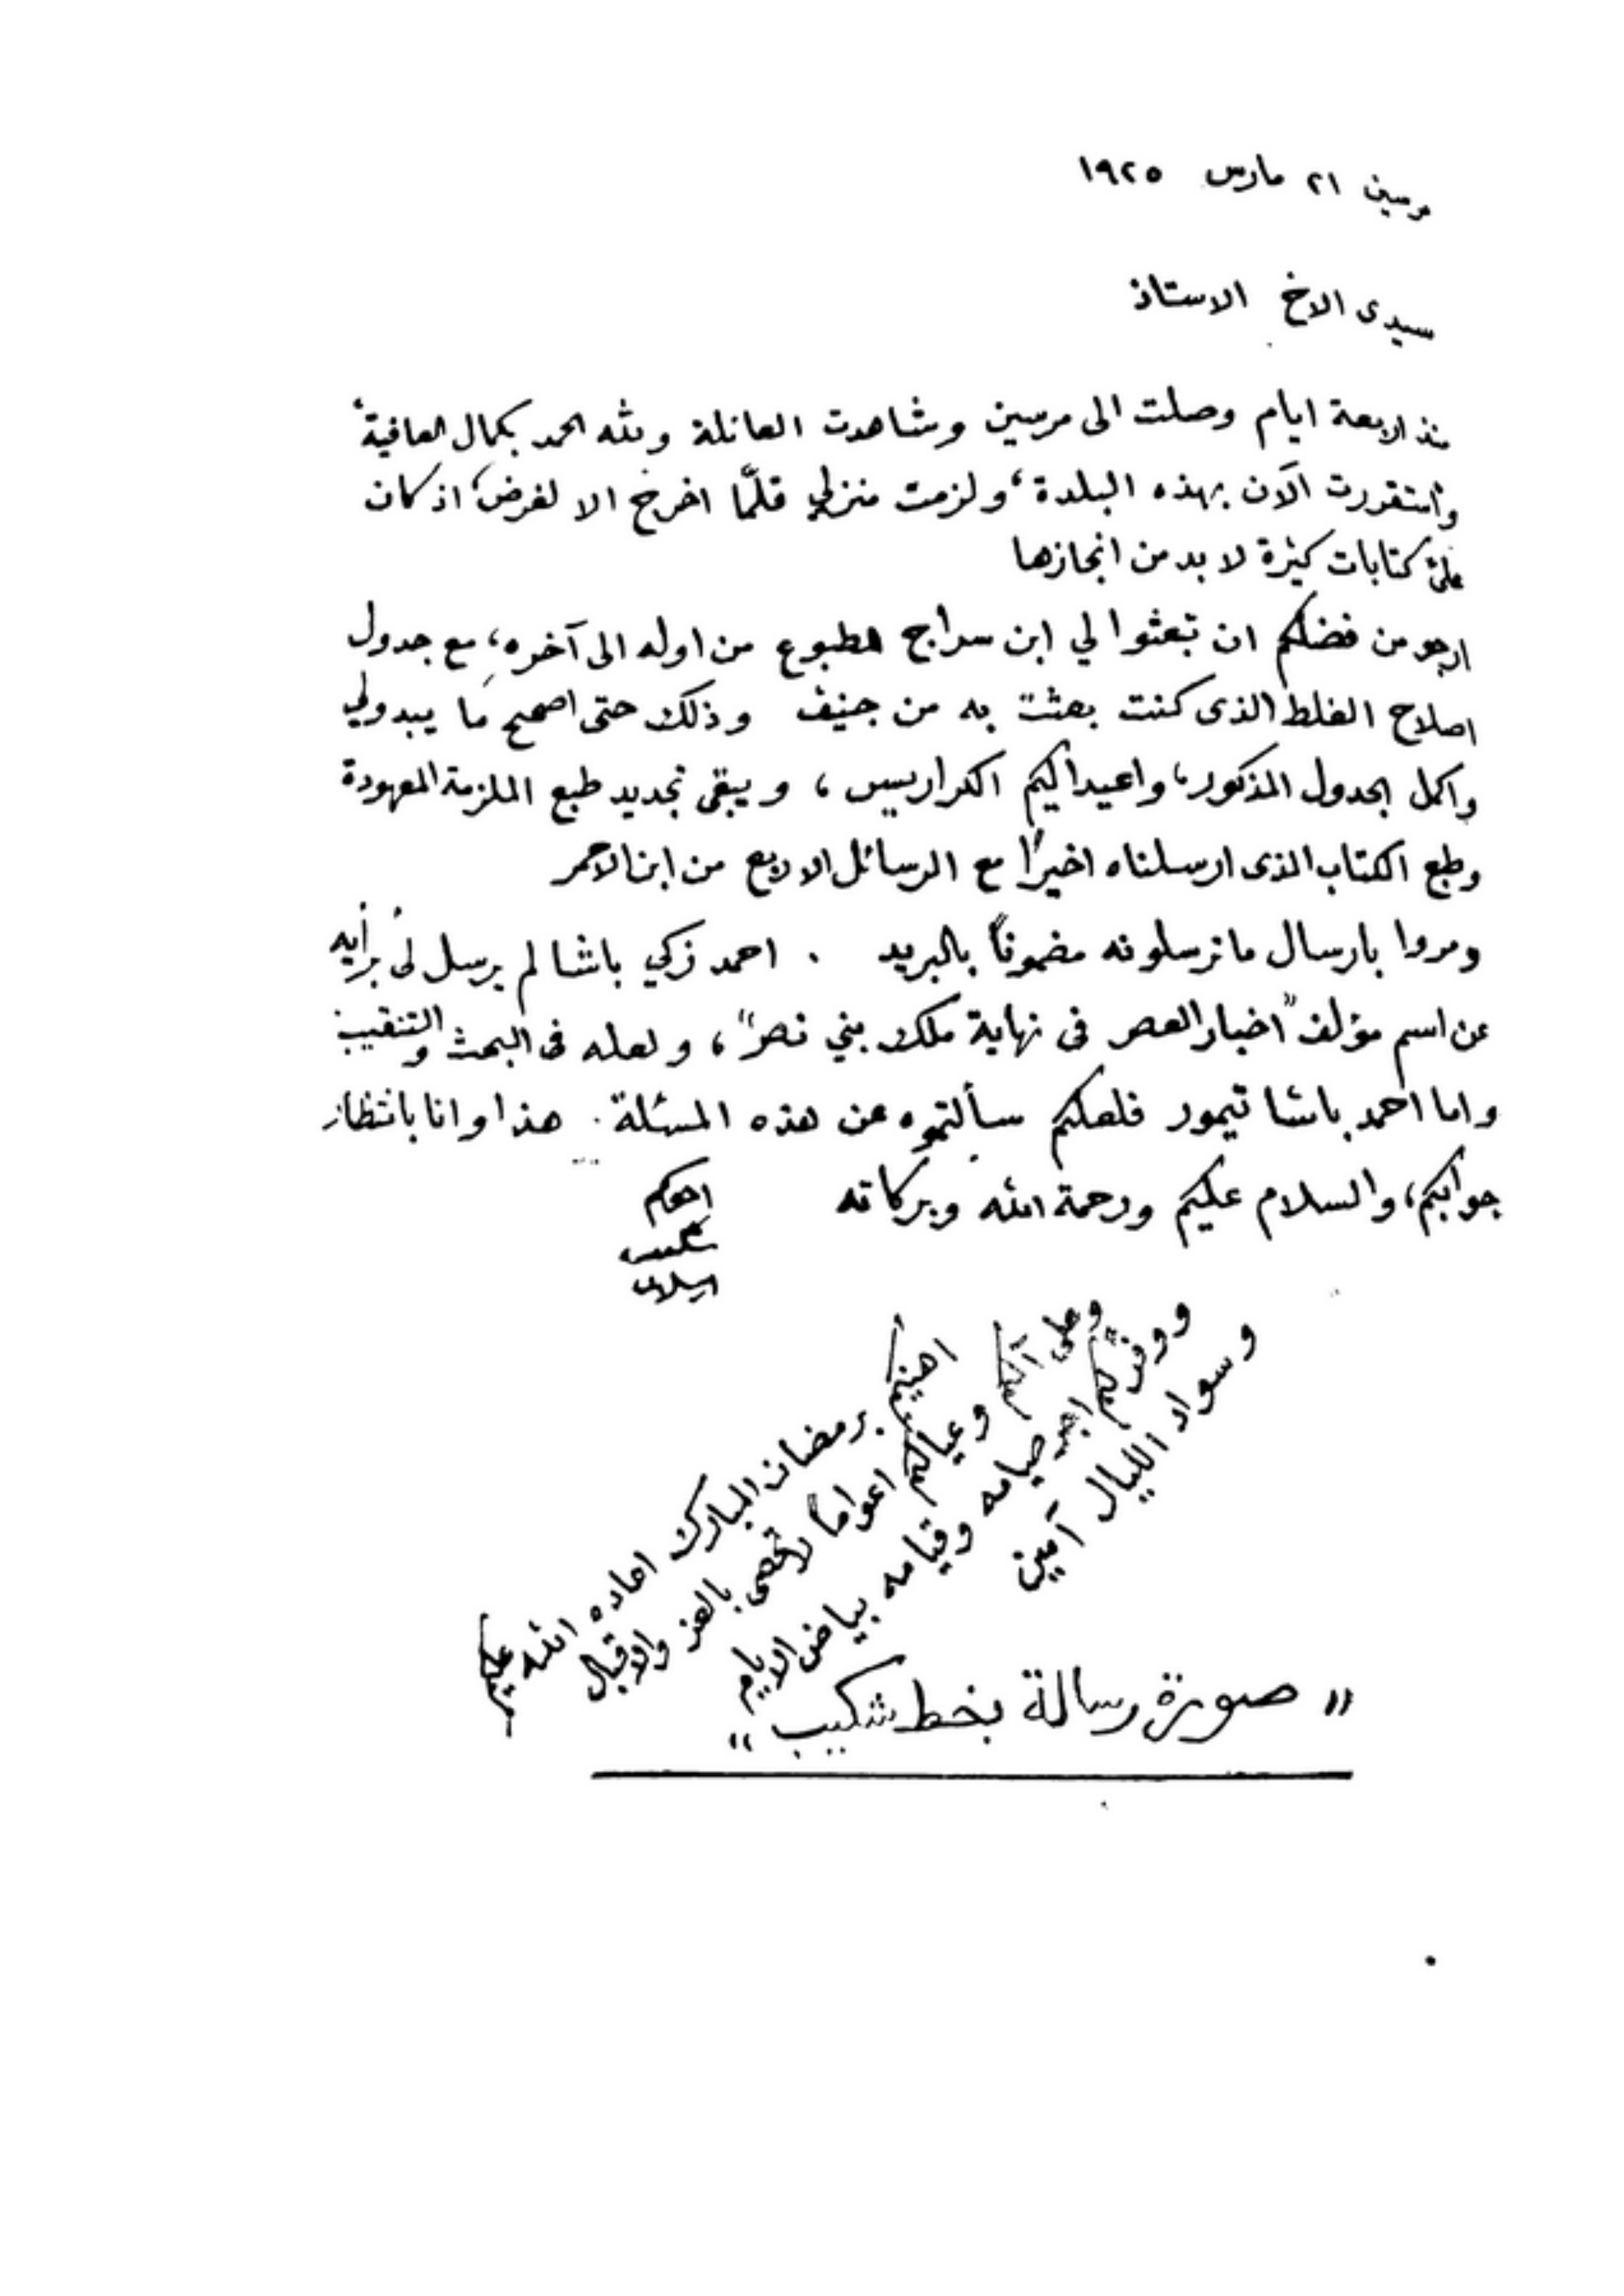 مرسين ٢١ مارس ١٩٢٥
سيدى الاخ الاستاذ
منذ اربعة ايام وصلت الى مرسين وشاهدت العائلة ولله الحمد بكمال العافية،
واستقررت الآن بهذه البلدة، ولزمت منزلي قلّما اخرج الا لغرض، اذ كان
عليّ كتابات كثيرة لا بد من انجازها
ارجو من فضلكم ان تبعثوا لي ابن سراج المطبوع من اوله الى آخره، مع جدول
اصلاح الغلط الذى كنت بعثت به من جنيف وذلك حتى اصحح ما يبدو لي
واكمل الجدول المذكور، واعيد اليكم الكراريس، ويبقى تجديد طبع الملزمة المعهودة
وطبع الكتاب الذى ارسلناه اخيرًا مع الرسائل الاربع من ابن الاحمر
ومروا بارسال ما ترسلونه مضمونًا بالبريد . احمد زكي باشا لم يرسل لى برأيه
عن اسم مؤلف "اخبار العصر فى نهاية ملك بني نصر"، ولعله فى البحث والتنقيب
واما احمد باشا تيمور فلعلكم سألتموه عن هذه المسئلة. هذا وانا بانتظار
جوابكم، والسلام عليكم ورحمة الله وبركاته
اخوكم
شكيب
ارسلان
اهنيكم برمضان المبارك اعاده الله عليكم
وعلى آلكم وعيالكم اعوامًا لا تحصى بالعز والاقبال
ووفّر لكم اجر صيامه وقيامه بياض الايام
وسواد الليال آمين
"صورة رسالة بخط شكيب"